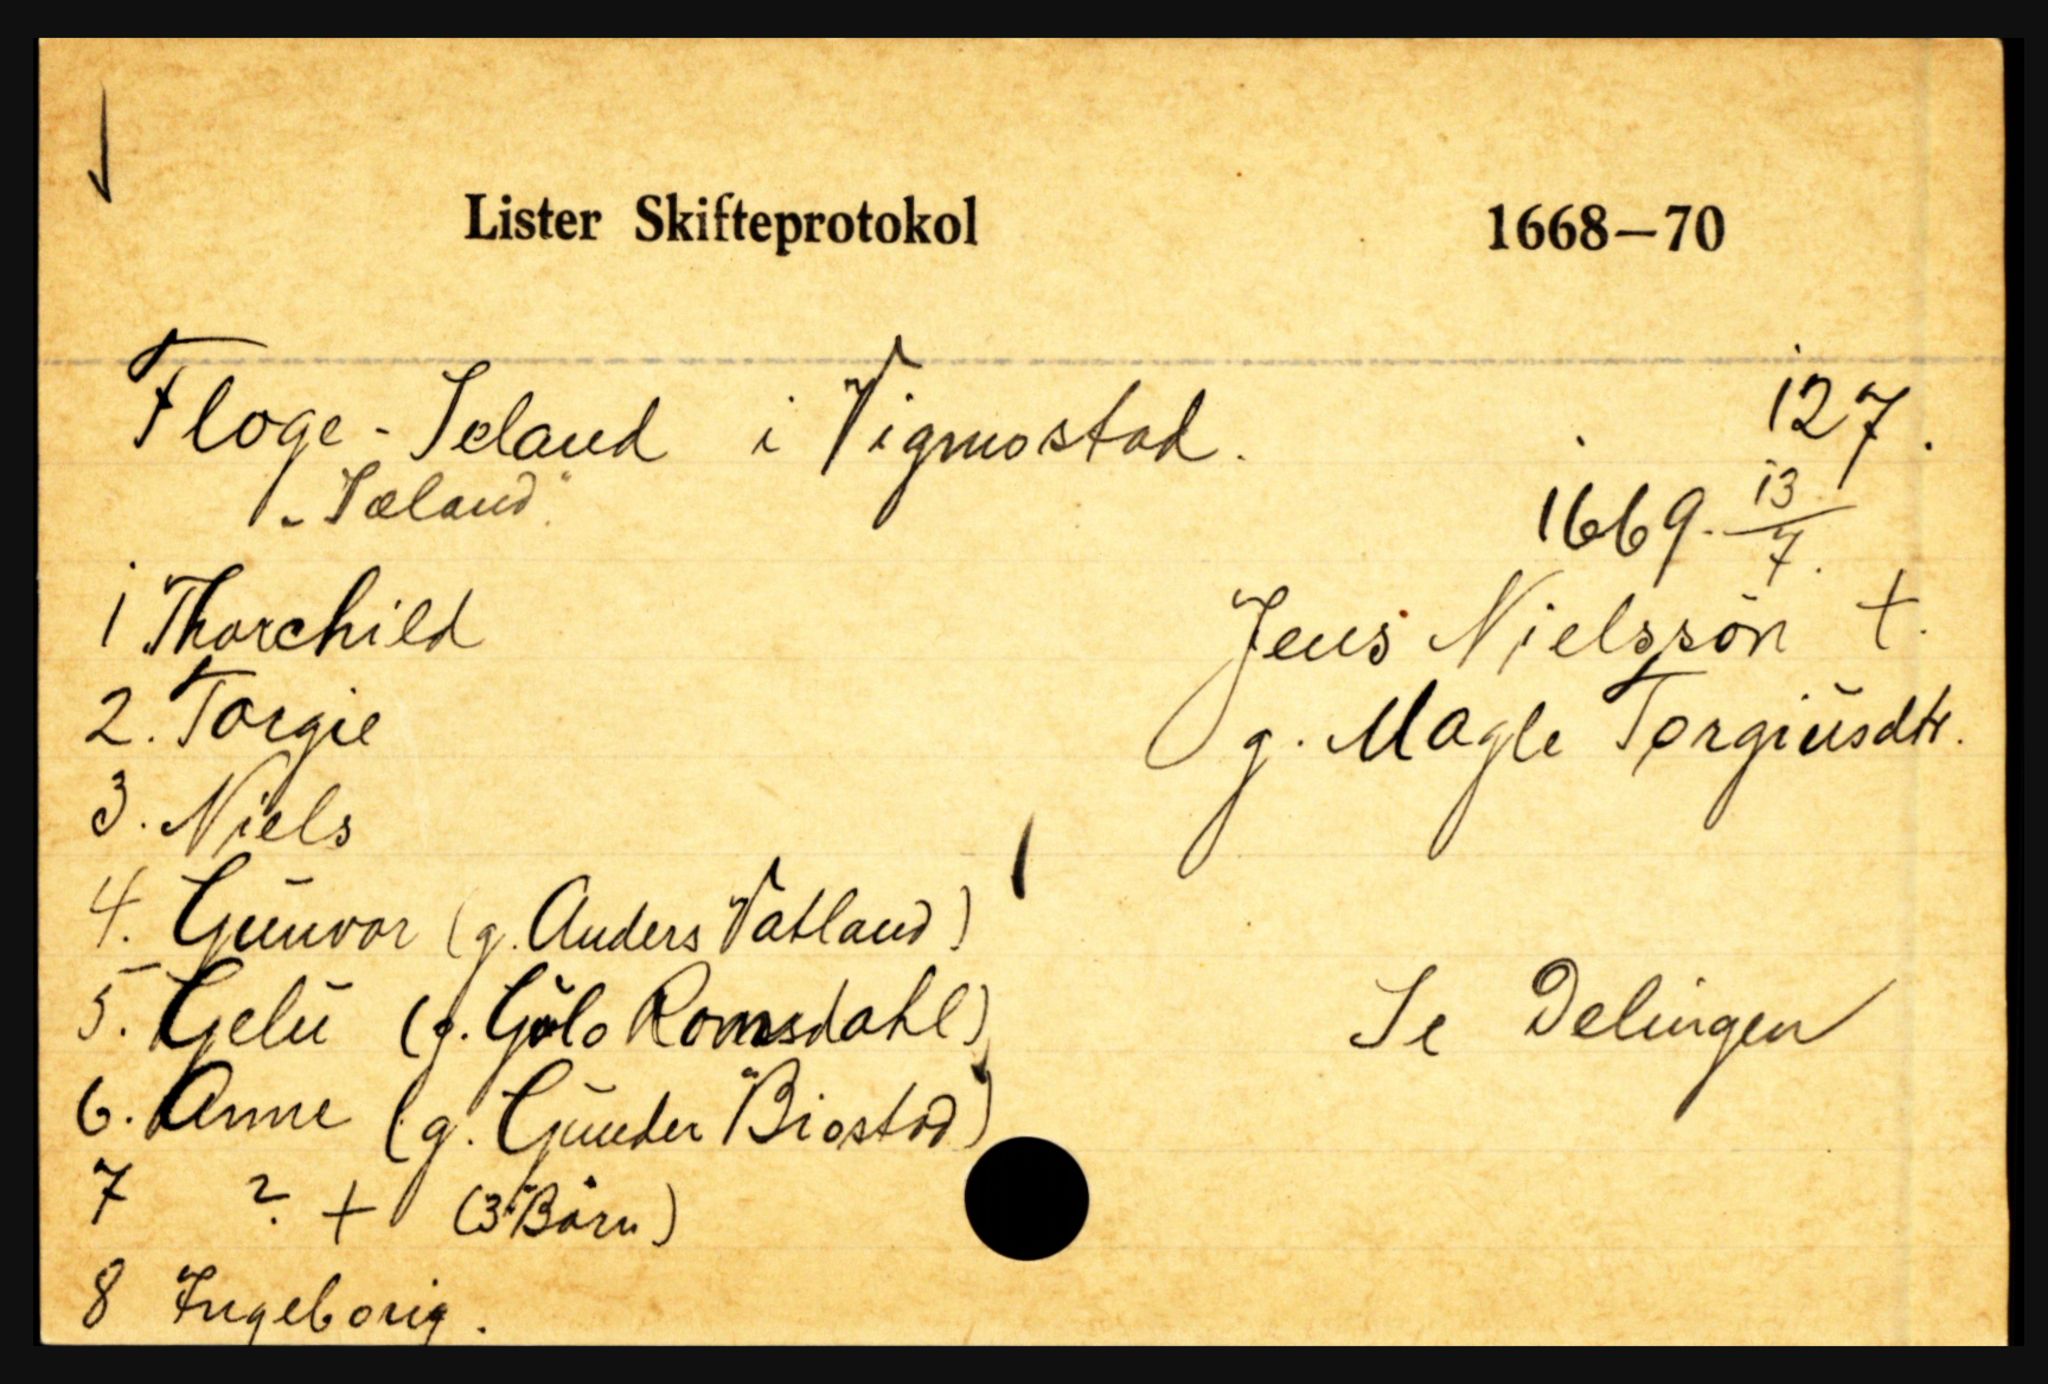 Lister Skifteprotokol 1668—70
Floge - Seland i Vigmostad. 127.
"Sæland" 1669. 13/7.
1 Thorchild Jens Nielssön +.
2. Torgie g. Magle Torgiŭsdtr.
3. Niels
4. Gŭnvor (g. Anders Vatland)
5. Gelŭ (g. Gŭlo Romsdahl) Se Delingen
6. Anne (g. Gŭnder "Biostad")
7 ? + (3 Børn)
8 Ingeborig.